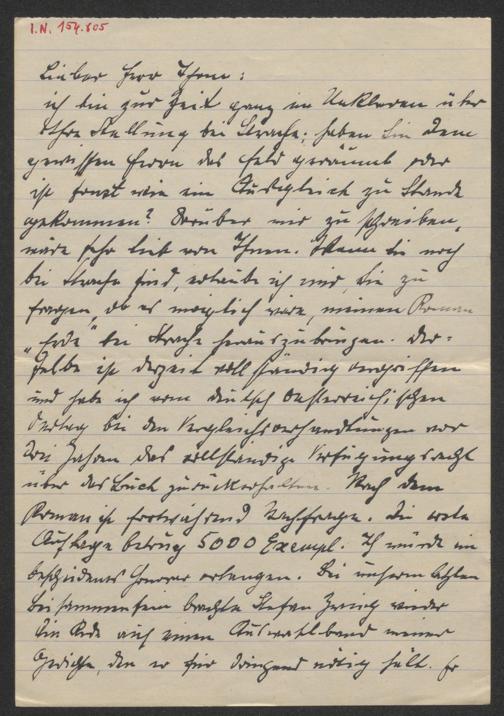 I.N. 154.805
Lieber Herr Thom:
ich bin zur Zeit ganz im Unklaren über
Ihre Stellung bei Strache; haben Sie dem
gewissen Herrn das Feld geräumt oder
ist sonst wie ein Ausgleich zu Stande
gekommen? Darüber mir zu schreiben,
wäre sehr lieb von Ihnen. Wenn Sie noch
bei Strache sind, erlaube ich mir, Sie zu
fragen, ob es möglich wäre, meinen Roman
„Erde" bei Strache herauszubringen. Der-
selbe ist derzeit vollständig vergriffen
und habe ich vom deutsch österreichischen
Verlag bei den Vergleichsverhandlungen vor
zwei Jahren das vollständige Verfügungsrecht
über das Buch zurückerhalten. Nach dem
Roman ist fortwährend Nachfrage. Die erste
Auflage betrug 5000 Exempl. Ich würde ein
bescheidenes Honorar verlangen. Bei unserm letzten
Beisammensein brachte Stefan Zweig wieder
die Rede auf einen Auswahlband meiner
Gedichte, den er für dringend nötig hält. Er